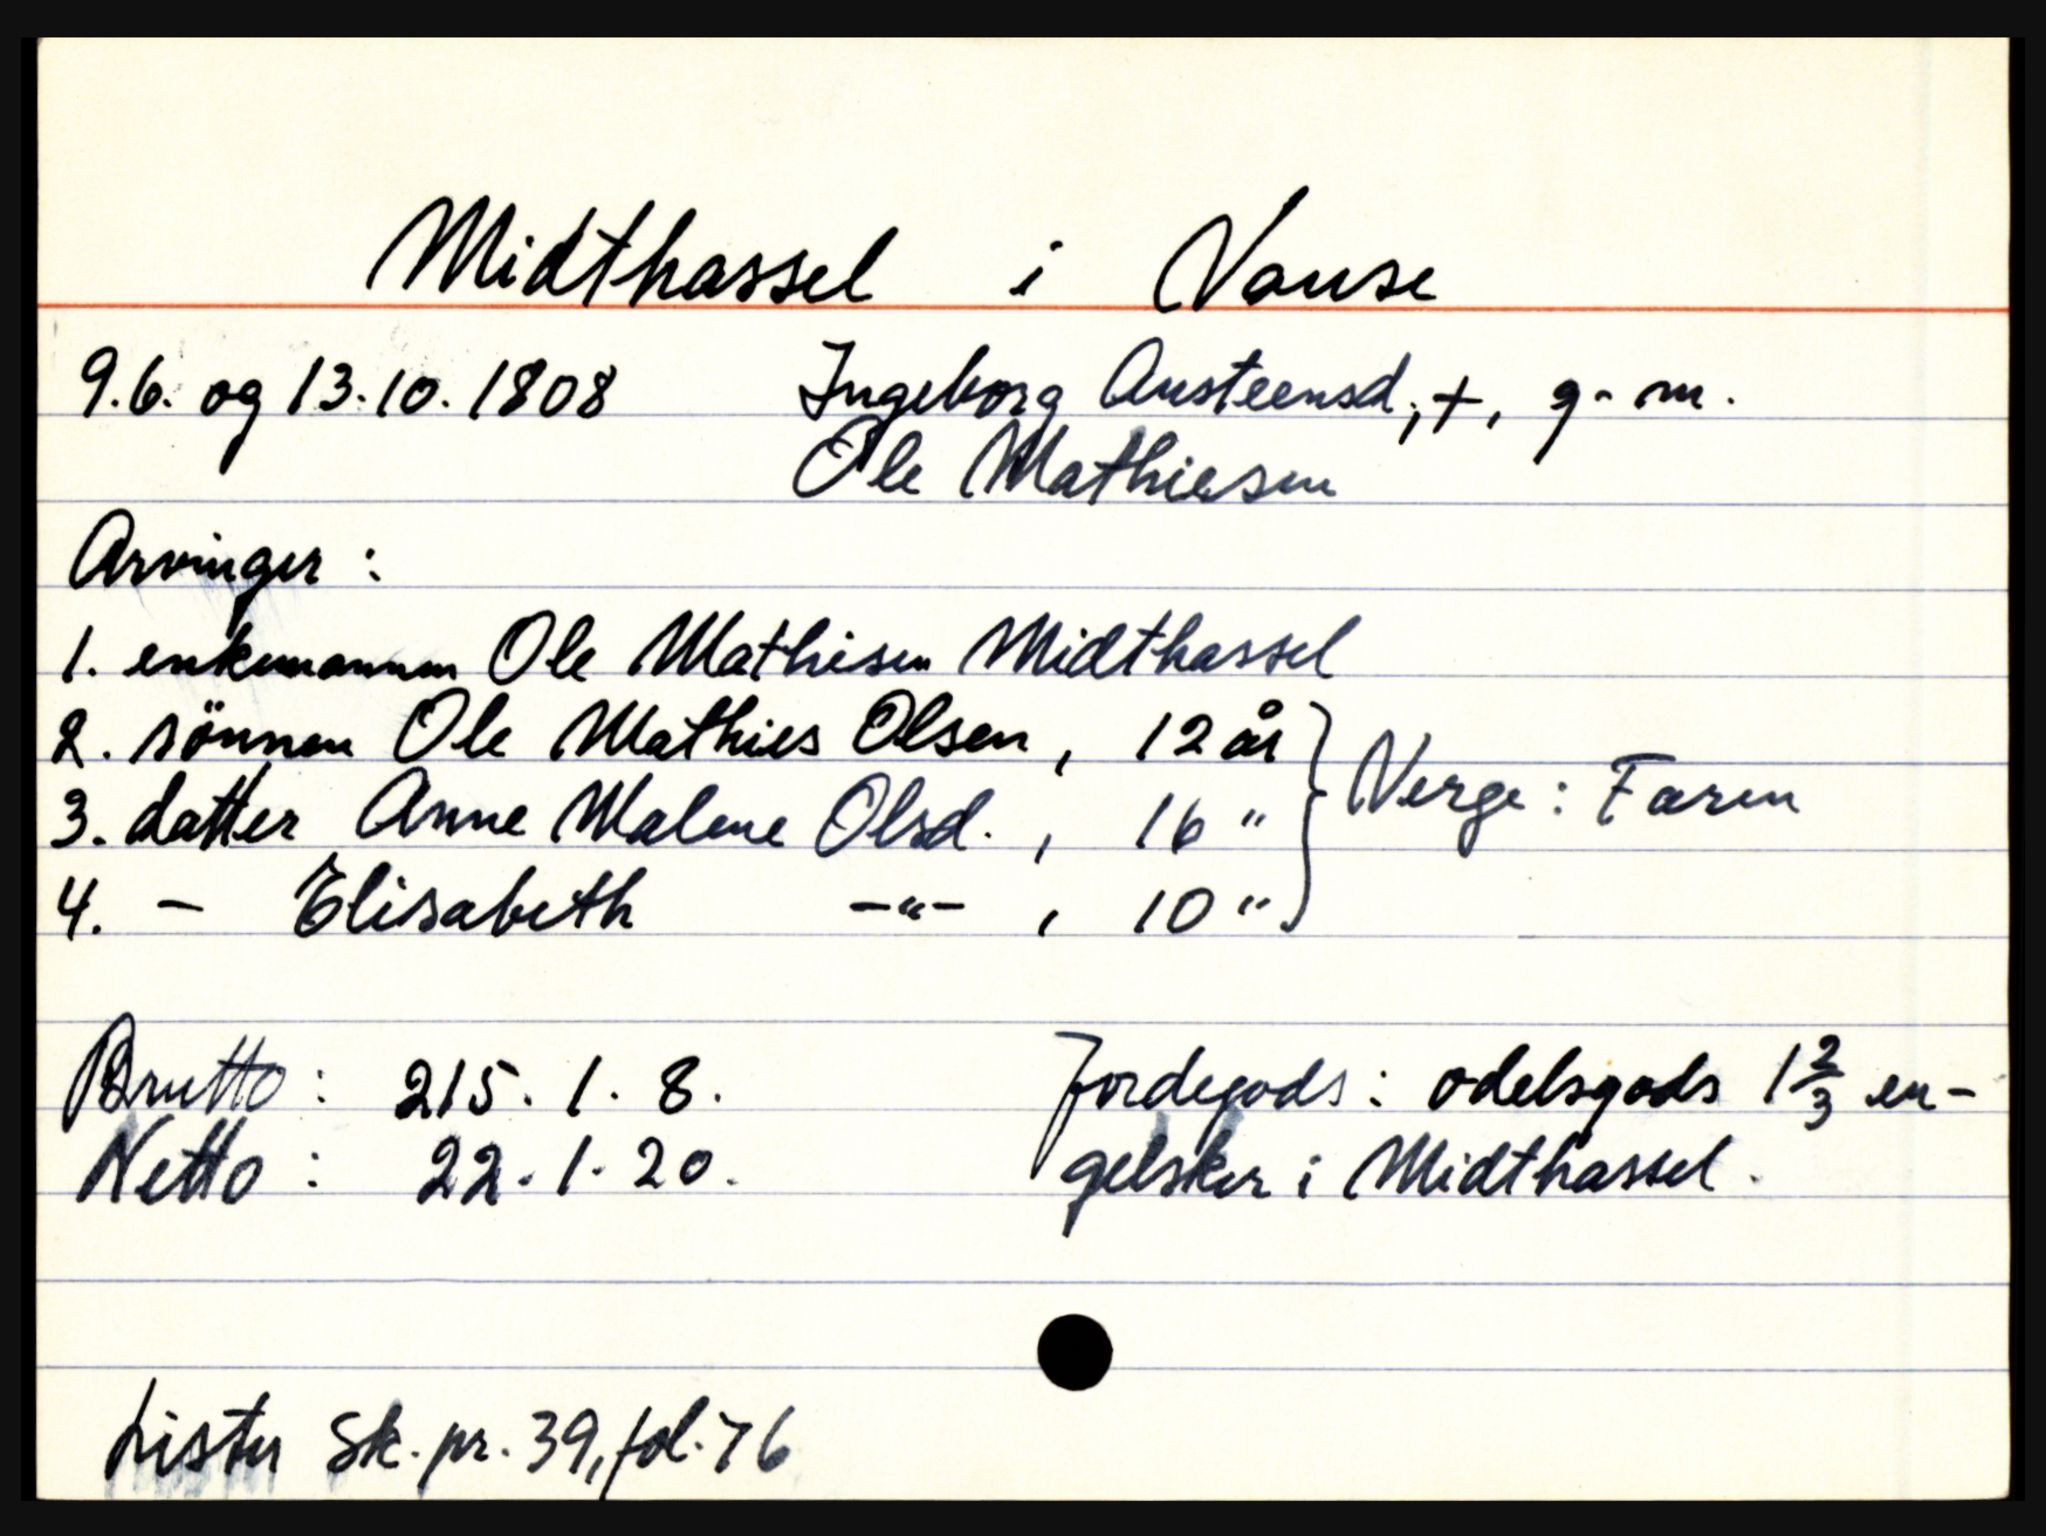 Midthassel i Vanse
9.6. og 13.10.1808 Ingeborg Austeensd., +, g. m.
Ole Mathiesen
Arvinger :
1. enkemannen Ole Mathisen Midthassel
2. sönnen Ole Mathies Olsen, 12 år
3. datter Anne Malene Olsd. , 16 " } Verge : Faren
4. - Elisabeth -"- , 10 "
Brutto : 215. 1. 8. Jordegods : odelsgods 1 2/3 en-
Netto : 22. 1. 20. gelsker i Midthassel.
Lister Sk.pr. 39, fol. 76